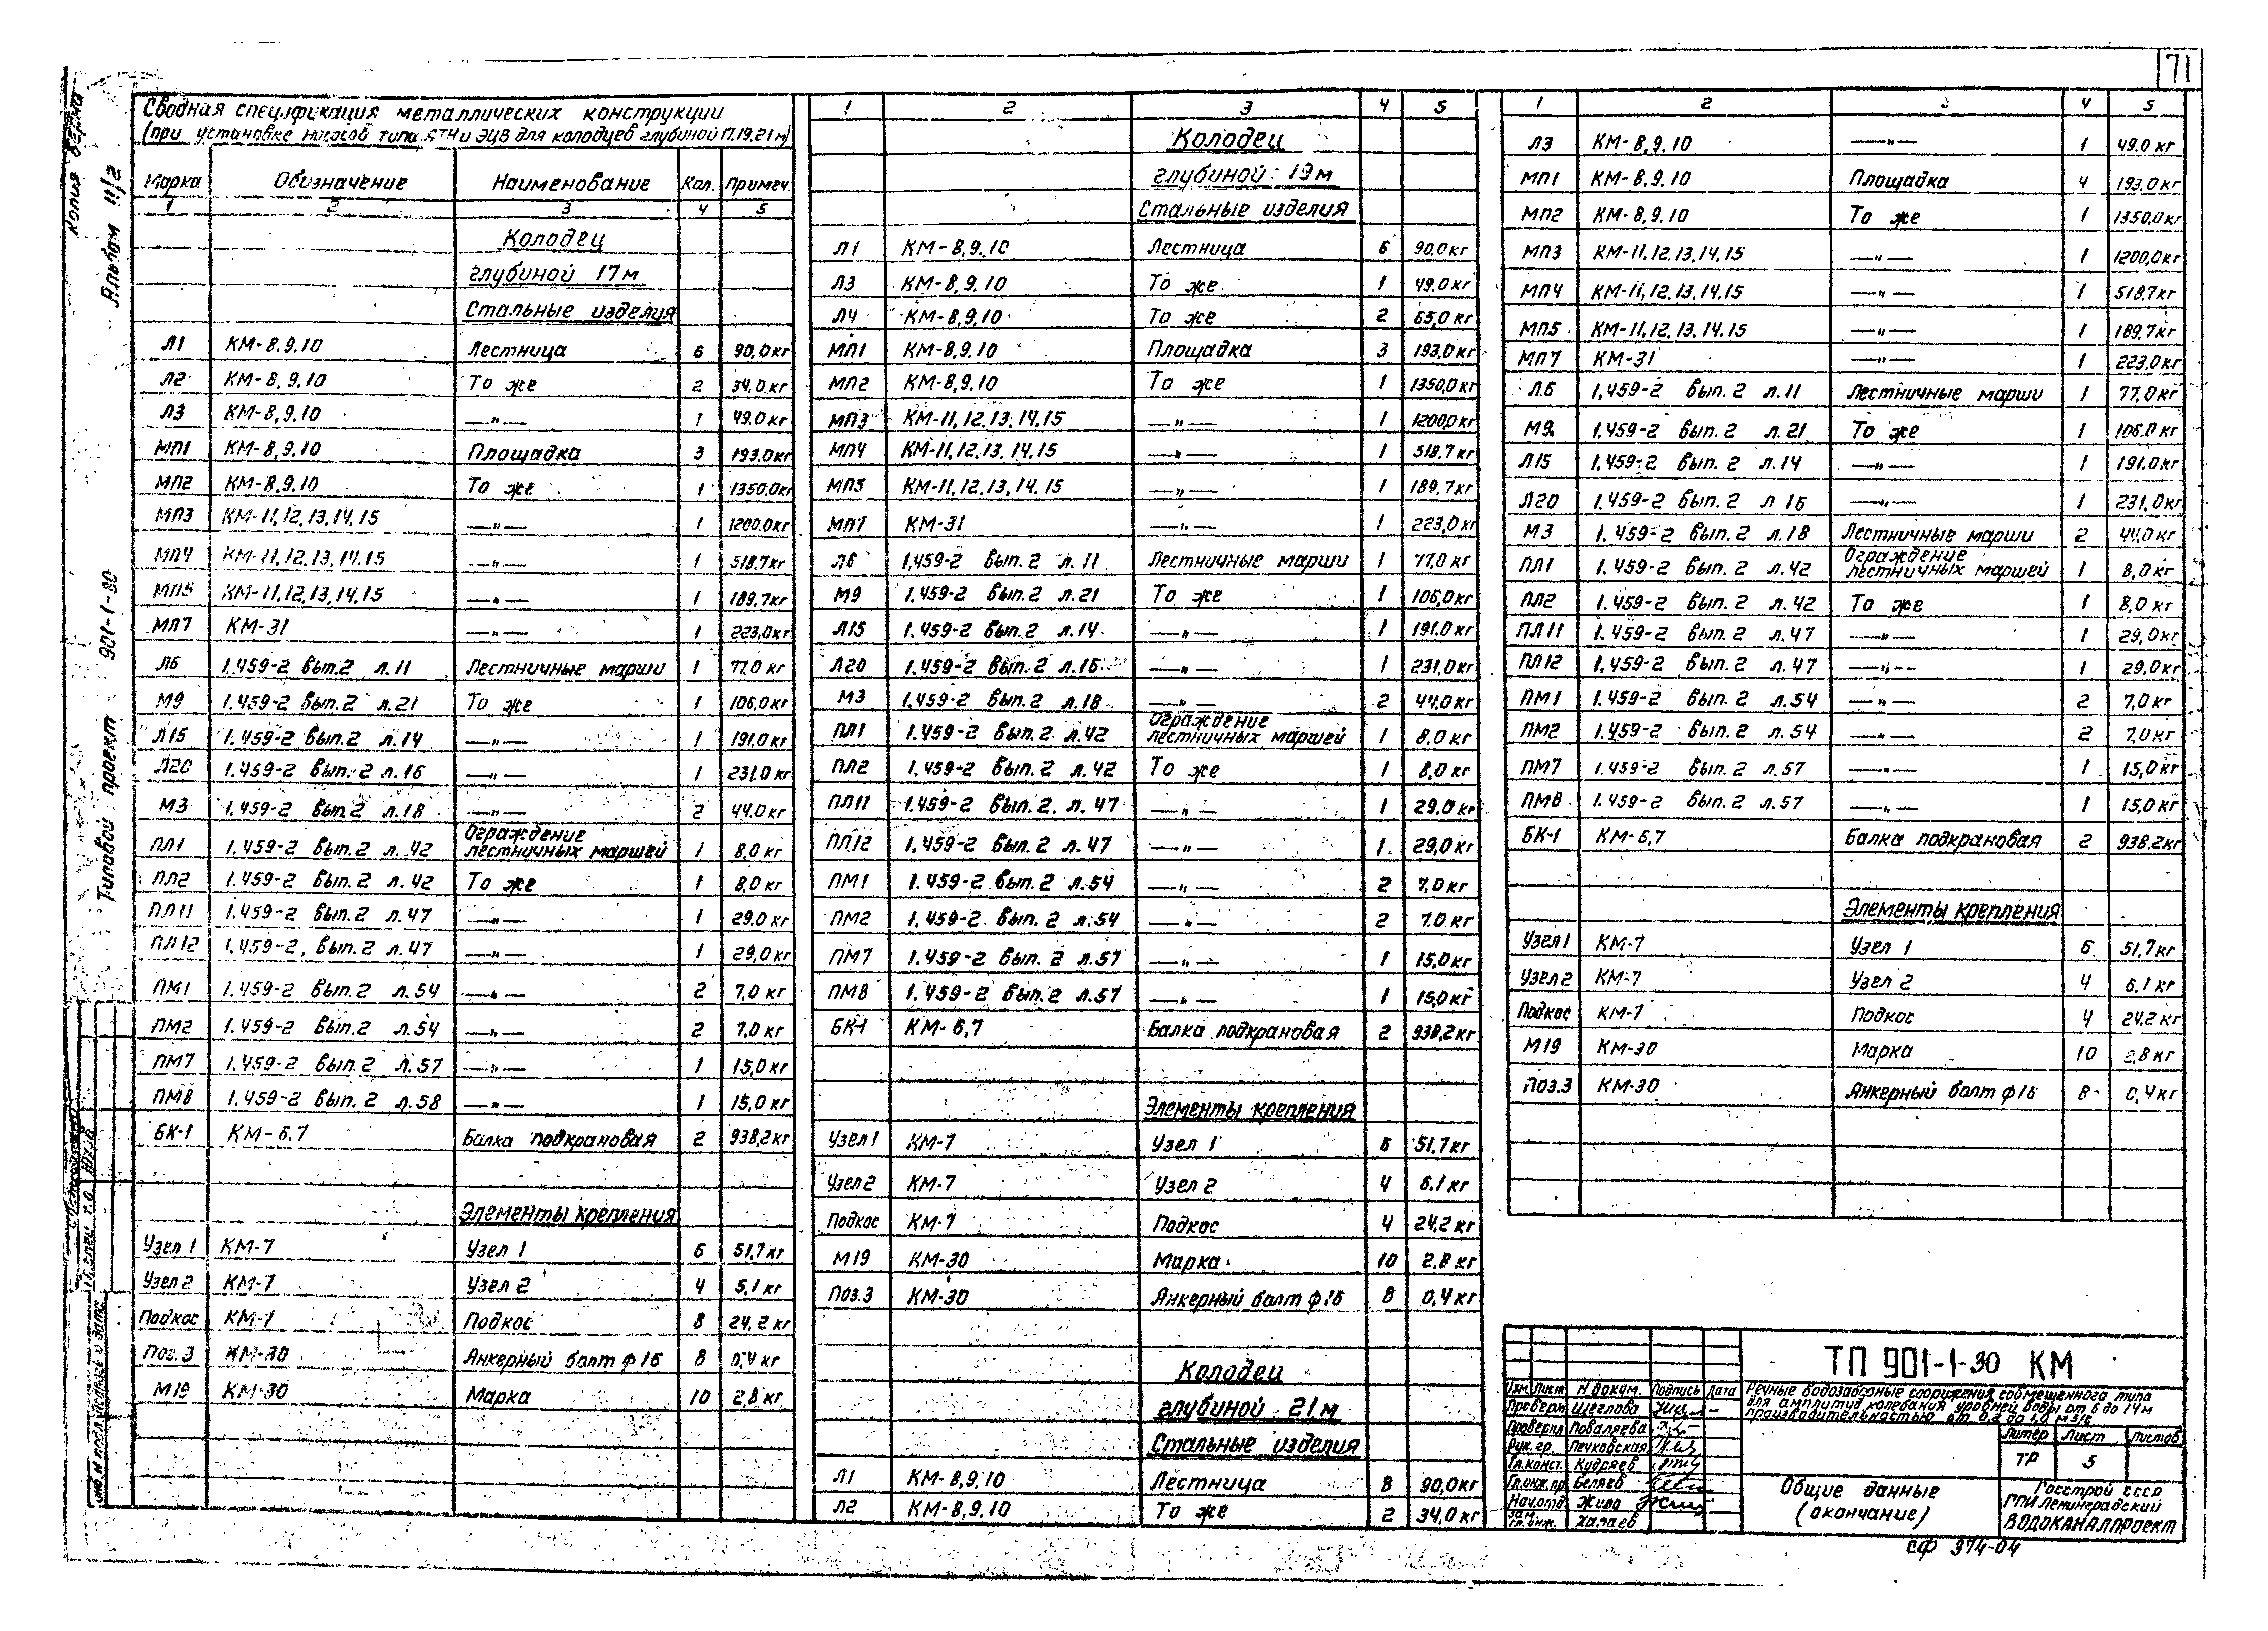 71
Копия верна
Альбом II/2
Типовой проект 901-1-30
Сводная спецификация металлических конструкции
(при установке насосов типа АТН и ЭЦВ для колодцев глубиной 17.19.21м)
Марка Обозначение Наименование Кол. Примеч.
1 2 3 4 5
Колодец
глубиной 17м
Стальные изделия
Л1 КМ-8,9,10 Лестница 6 90,0кг
Л2 КМ-8,9,10 То же 2 34,0кг
Л3 КМ-8,9,10 —„— 1 49.0кг
МП1 КМ-8,9,10 Площадка 3 193.0кг
МП2 КМ-8,9.10 То же 1 1350.0кг
МП3 КМ-11,12,13,14,15 —„— 1 1200.0кг
МП4 КМ-11,12,13,14,15 —„— 1 518,7кг
МП5 КМ-11,12,13,14,15 —„— 1 189,7кг
МП7 КМ-31 —„— 1 223,0кг
Л6 1.459-2 вып.2 л.11 Лестничные марши 1 77.0 кг
М9 1.459-2 вып.2 л.21 То же 1 106,0кг
Л15 1.459-2 вып.2 л.14 —„— 1 191.0кг
Л20 1.459-2 вып.2 л.16 —„— 1 231.0кг
М3 1.459-2 вып.2 л.18 —„— 2 44.0кг
ПЛ1 1.459-2 вып.2 л.42 Ограждение лестничных маршей 1 8.0 кг
ПЛ2 1.459-2 вып.2 л.42 То же 1 8.0 кг
ПЛ11 1.459-2 вып.2 л.47 —„— 1 29.0 кг
ПЛ12 1.459-2, вып.2 л.47 —„— 1 29,0кг
ПМ1 1.459-2 вып.2 л.54 —„— 2 7,0 кг
ПМ2 1.459-2 вып.2 л.54 —„— 2 7,0 кг
ПМ7 1.459-2 вып.2 л.57 —„— 1 15,0кг
ПМ8 1.459-2 вып.2 л.58 —„— 1 15,0кг
БК-1 КМ-6.7 Балка подкрановая 2 938,2кг
Элементы крепления
Узел 1 КМ-7 Узел 1 6 51,7кг
Узел 2 КМ-7 Узел 2 4 5,1 кг
Подкос КМ-7 Подкос 8 24,2 кг
Поз. 3 КМ-30 Анкерный болт ф16 8 0,4 кг
М19 КМ-30 Марка 10 2,8 кг
1 2 3 4 5
Колодец
глубиной 19м
Стальные изделия
Л1 КМ-8,9.10 Лестница 6 90,0кг
Л3 КМ-8,9,10 То же 1 49.0кг
Л4 КМ-8,9,10 То же 2 65,0кг
МП1 КМ-8,9,10 Площадка 3 193.0кг
МП2 КМ-8,9,10 То же 1 1350,0кг
МП3 КМ-11,12,13,14,15 —„— 1 1200,0кг
МП4 КМ-11,12,13,14,15 —„— 1 518.7кг
МП5 КМ-11,12,13,14.15 —„— 1 189,7кг
МП7 КМ-31 —„— 1 223,0кг
Л6 1.459-2 вып.2 л.11 Лестничные марши 1 77,0 кг
М9 1.459-2 вып.2 л.21 То же 1 106,0кг
Л15 1.459-2 вып.2 л.14 —„— 1 191.0кг
Л20 1.459-2 вып.2 л.16 —„— 1 231.0кг
М3 1.459-2 вып.2 л.18 —„— 2 44,0кг
ПЛ1 1.459-2 вып.2 л.42 Ограждение лестничных маршей 1 8.0 кг
ПЛ2 1.459-2 вып.2 л.42 То же 1 8,0 кг
ПЛ11 1.459-2 вып.2. л.47 —„— 1 29.0кг
ПЛ12 1.459-2 вып.2 л.47 —„— 1 29,0кг
ПМ1 1.459-2 вып.2 л.54 —„— 2 7,0 кг
ПМ2 1.459-2 вып.2 л.54 —„— 2 7.0 кг
ПМ7 1.459-2 вып.2 л.57 —„— 1 15,0кг
ПМ8 1.459-2 вып.2 л.57 —„— 1 15,0кг
БК-1 КМ-6,7 Балка подкрановая 2 938,2кг
Элементы крепления
Узел 1 КМ-7 Узел 1 6 51,7кг
Узел 2 КМ-7 Узел 2 4 6.1 кг
Подкос КМ-7 Подкос 4 24,2кг
М19 КМ-30 Марка 10 2.8 кг
Поз.3 КМ-30 Анкерный болт ф16 8 0,4кг
Колодец
глубиной 21м
Стальные изделия
Л1 КМ-8,9,10 Лестница 8 90,0кг
Л2 КМ-8,9,10 То же 2 34,0кг
1 2 3 4 5
Л3 КМ-8,9.10 —„— 1 49.0 кг
МП1 КМ-8,9.10 Площадка 4 193,0кг
МП2 КМ-8,9,10 То же 1 1350.0кг
МП3 КМ-11,12.13,14,15 —„— 1 1200,0кг
МП4 КМ-11,12,13,14.15 —„— 1 518,7кг
МП5 КМ-11,12,13,14,15 —„— 1 189,7кг
МП7 КМ-31 —„— 1 223.0кг
Л6 1.459-2 вып.2 л.11 Лестничные марши 1 77.0кг
М9 1.459-2 вып.2 л.21 То же 1 106.0кг
Л15 1.459-2 вып.2 л.14 —„— 1 191.0кг
Л20 1.459-2 вып.2 л 16 —„— 1 231,0кг
М3 1.459-2 вып.2 л.18 Лестничные марши 2 44,0кг
ПЛ1 1.459-2 вып.2 л.42 Ограждение лестничных маршей 1 8,0кг
ПЛ2 1.459-2 вып.2 л.42 То же 1 8,0 кг
ПЛ11 1.459-2 вып.2 л.47 —„— 1 29,0кг
ПЛ12 1.459-2 вып.2 л.47 —„— 1 29,0кг
ПМ1 1.459-2 вып.2 л.54 —„— 2 7,0кг
ПМ2 1.459-2 вып.2 л.54 —„— 2 7,0кг
ПМ7 1.459-2 вып.2 л.57 —„— 1 15,0кг
ПМ8 1.459-2 вып.2 л.57 —„— 1 15,0кг
БК-1 КМ-6,7 Балка подкрановая 2 938.2кг
Элементы крепления
Узел 1 КМ-7 Узел 1 6 51,7кг
Узел 2 КМ-7 Узел 2 4 6.1 кг
Подкос КМ-7 Подкос 4 24,2 кг
М19 КМ-30 Марка 10 2,8 кг
Поз.3 КМ-30 Анкерный болт ф16 8 0,4кг
ТП 901-1-30 КМ
Изм. Лист N докум. Подпись Дата
Речные водозаборные сооружения совмещенного типа
для амплитуд колебания уровней воды от 6 до 14м
производительностью от 0,2 до 1,0 м3/с
Проверил Щеглова
Проверил Поваляева
Рук. гр. Печковская
Гл.конст. Кудряев
Гл.инж.пр. Беляев
Нач.отд.
Зам. гл.инж.
Литер Лист Листов
ТР 5
Общие данные
(окончание)
Госстрой СССР
ГПИ Ленинградский
ВОДОКАНАЛПРОЕКТ
СФ 374-04